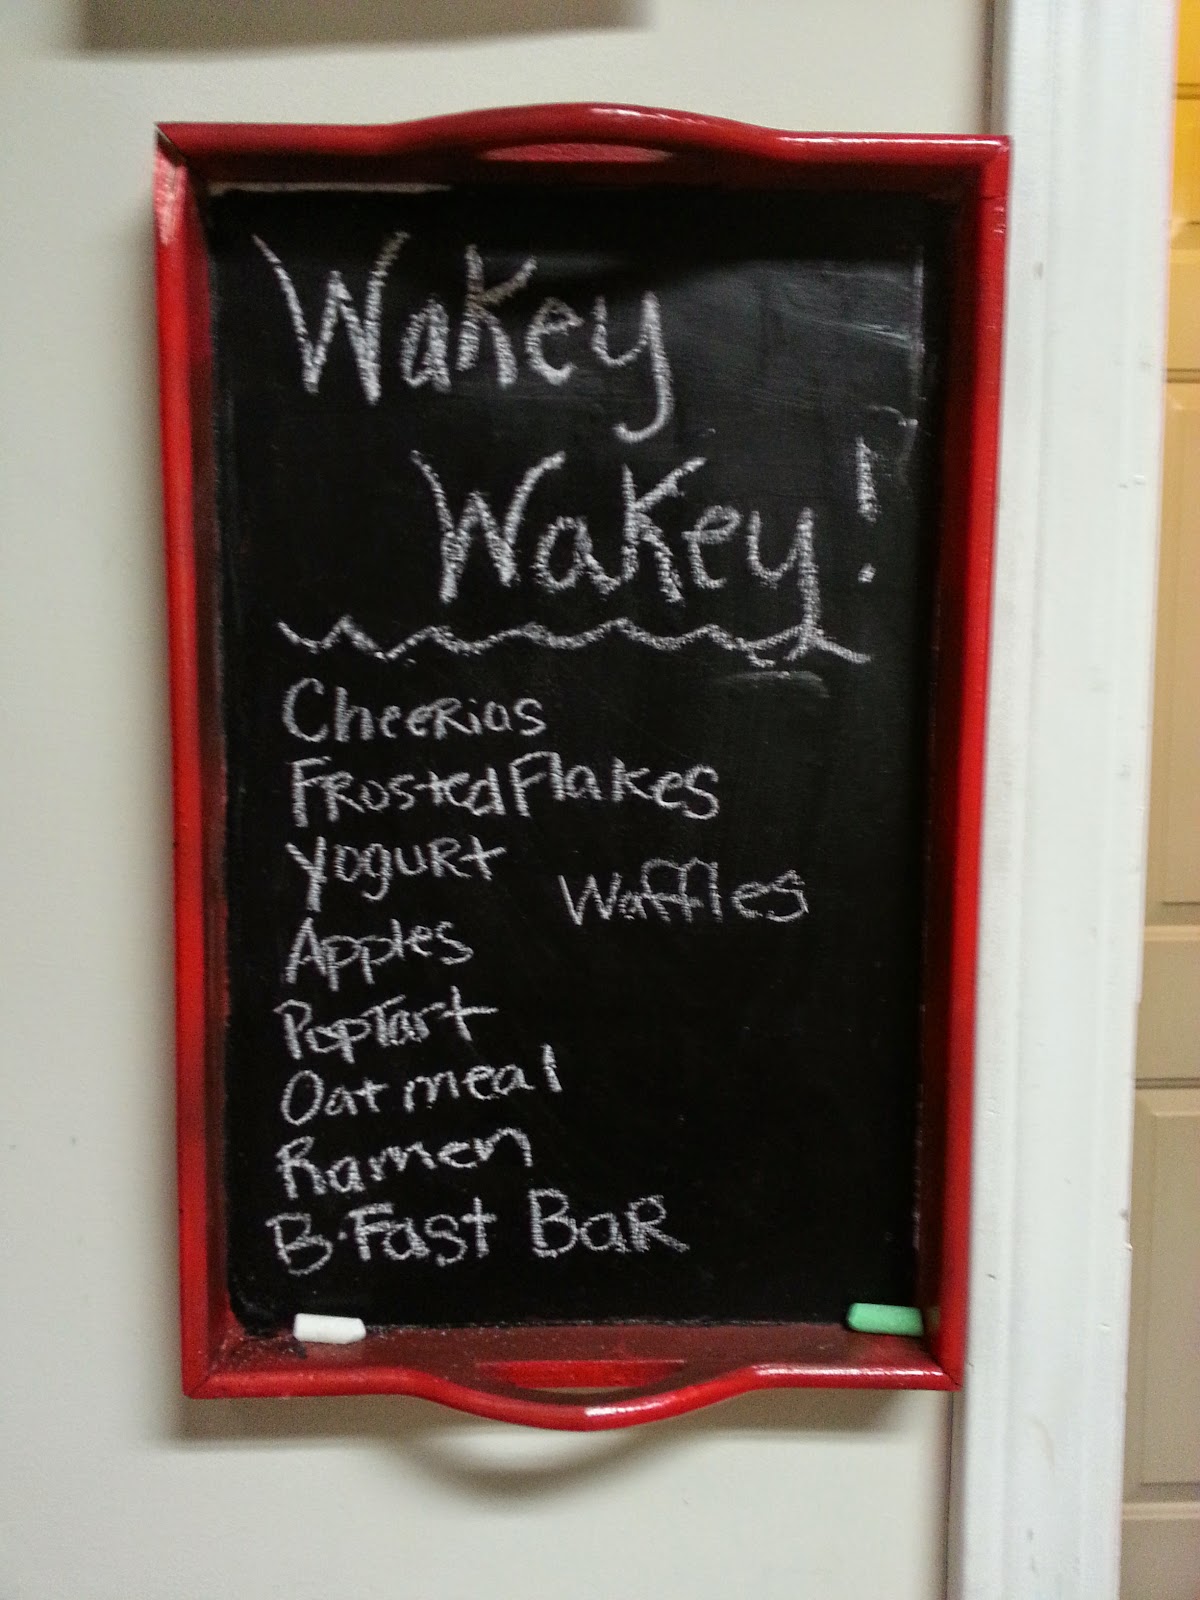 Wakey
Wakey!
Cheerios
Frosted Flakes
Yogurt
Waffles
Apples
PopTart
Oatmeal
Ramen
B.Fast Bar